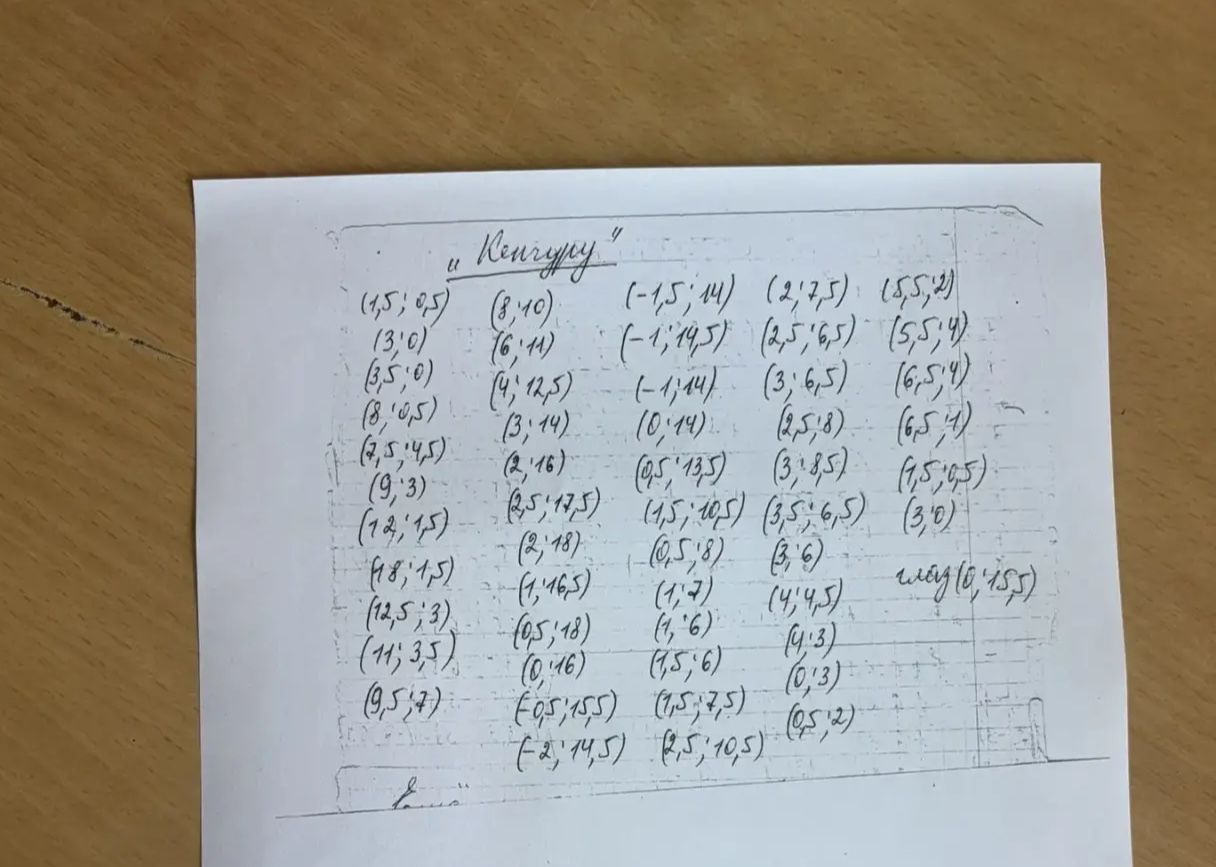 „Кенгуру"
(1,5; 0,5)
(3; 0)
(3,5; 0)
(8; 0,5)
(7,5; 4,5)
(9; 3)
(12; 1,5)
(18; 1,5)
(12,5; 3)
(11; 3,5)
(9,5; 7)
(8; 10)
(6; 11)
(4; 12,5)
(3; 14)
(2; 16)
(2,5; 17,5)
(2; 18)
(1; 16,5)
(0,5; 18)
(0; 16)
(-0,5; 15,5)
(-2; 14,5)
(-1,5; 14)
(-1; 14,5)
(-1; 14)
(0; 14)
(0,5; 13,5)
(1,5; 10,5)
(0,5; 8)
(1; 7)
(1; 6)
(1,5; 6)
(1,5; 7,5)
(2,5; 10,5)
(2; 7,5)
(2,5; 6,5)
(3; 6,5)
(2,5; 8)
(3; 8,5)
(3,5; 6,5)
(3; 6)
(4; 4,5)
(4; 3)
(0; 3)
(0,5; 2)
(5,5; 2)
(5,5; 4)
(6,5; 4)
(6,5; 1)
(1,5; 0,5)
(3; 0)
глаз (0; 15,5)